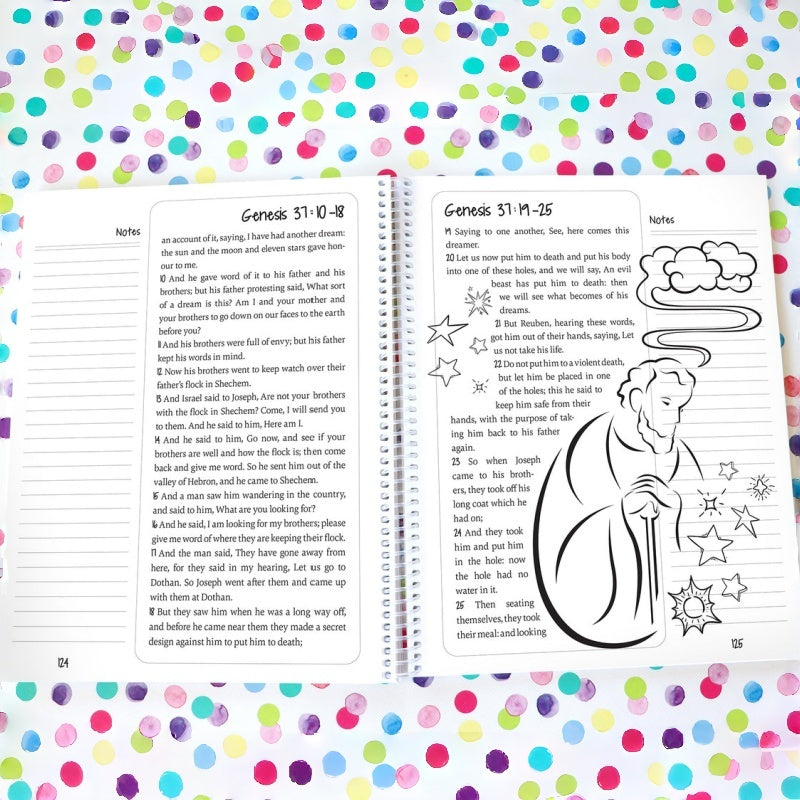 Notes
Genesis 37:10-18
an account of it, saying, I have had another dream:
the sun and the moon and eleven stars gave hon-
our to me.
10 And he gave word of it to his father and his
brothers; but his father protesting said, What sort
of a dream is this? Am I and your mother and
your brothers to go down on our faces to the earth
before you?
11 And his brothers were full of envy; but his father
kept his words in mind.
12 Now his brothers went to keep watch over their
father's flock in Shechem.
13 And Israel said to Joseph, Are not your brothers
with the flock in Shechem? Come, I will send you
to them. And he said to him, Here am I.
14 And he said to him, Go now, and see if your
brothers are well and how the flock is; then come
back and give me word. So he sent him out of the
valley of Hebron, and he came to Shechem.
15 And a man saw him wandering in the country,
and said to him, What are you looking for?
16 And he said, I am looking for my brothers; please
give me word of where they are keeping their flock.
17 And the man said, They have gone away from
here, for they said in my hearing, Let us go to
Dothan. So Joseph went after them and came up
with them at Dothan.
18 But they saw him when he was a long way off,
and before he came near them they made a secret
design against him to put him to death;
124
Genesis 37:19-25
Notes
19 Saying to one another, See, here comes this
dreamer.
20 Let us now put him to death and put his body
into one of these holes, and we will say, An evil
beast has put him to death: then
we will see what becomes of his
dreams.
21 But Reuben, hearing these words,
got him out of their hands, saying, Let
us not take his life.
22 Do not put him to a violent death,
but let him be placed in one
of the holes; this he said to
keep him safe from their
hands, with the purpose of tak-
ing him back to his father
again.
23 So when Joseph
came to his broth-
ers, they took off his
long coat which he
had on;
24 And they took
him and put him
in the hole: now
the hole had no
water in it.
25 Then seating
themselves, they took
their meal: and looking
125